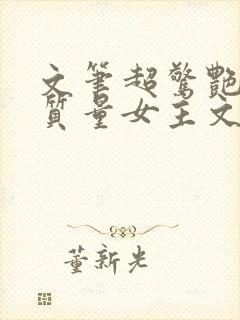 文筆超驚艷
質量女主文
董新光